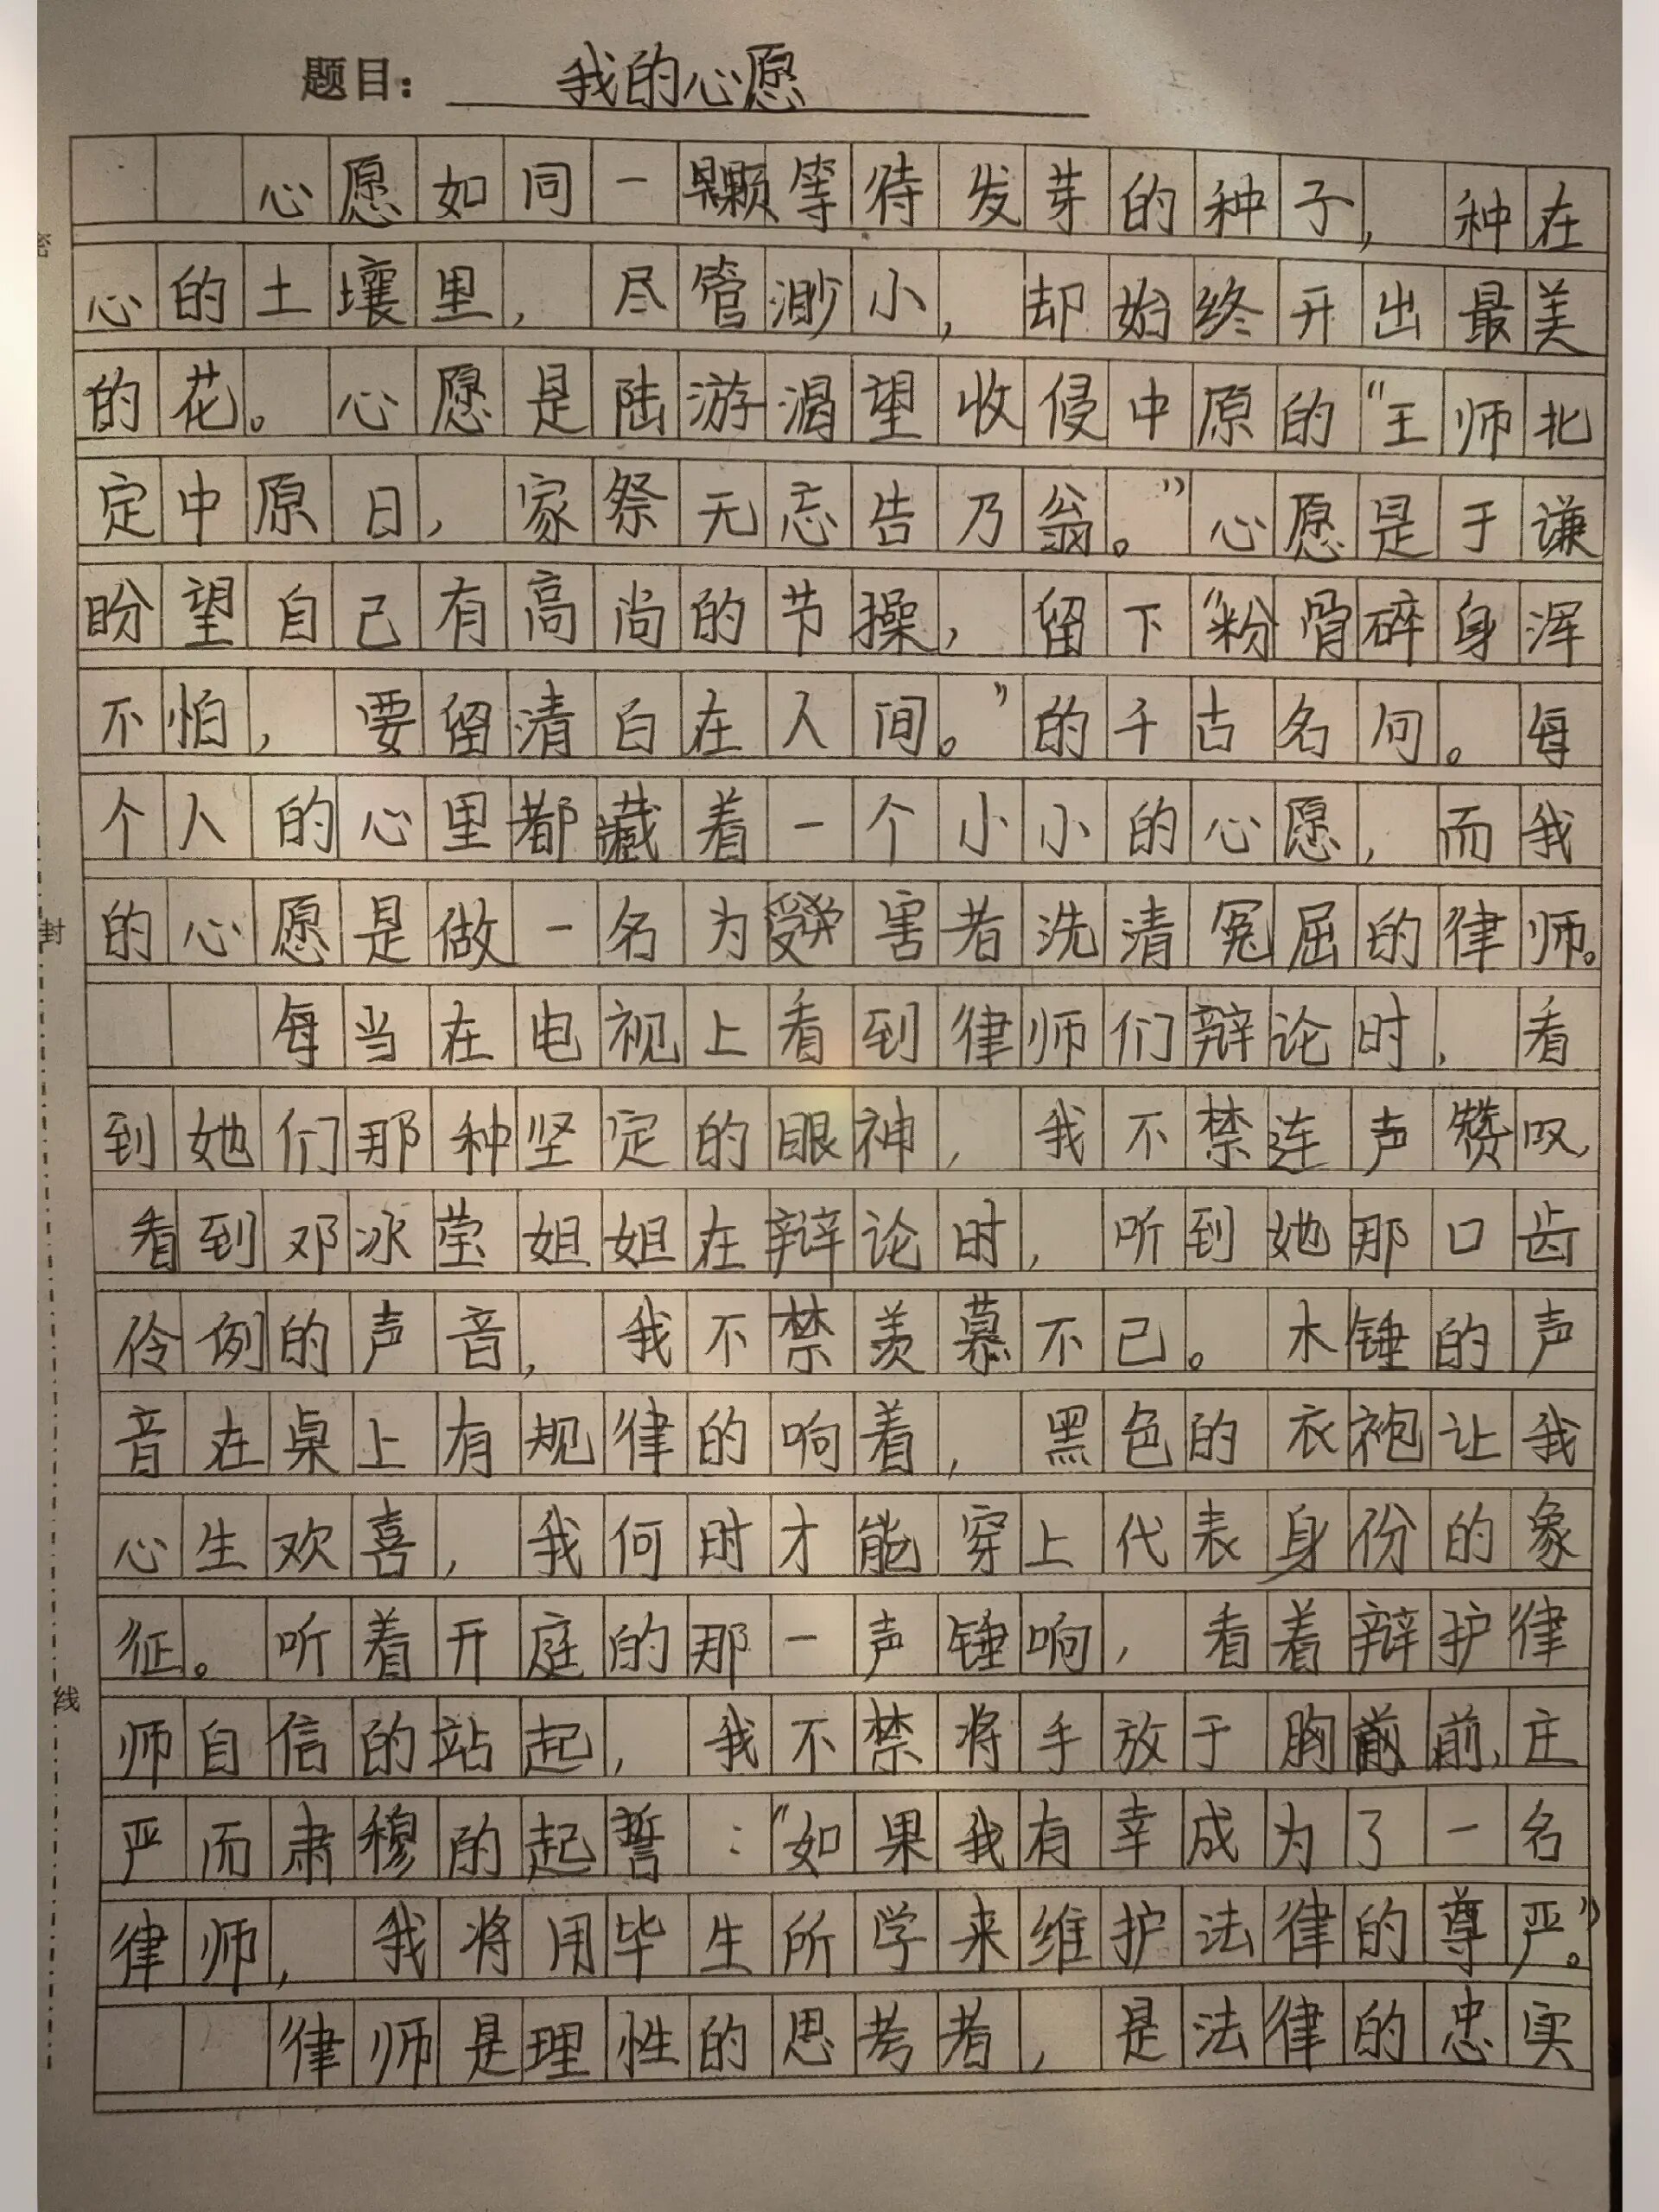 题目：我的心愿
心愿如同一颗等待发芽的种子，种在
心的土壤里，尽管渺小，却始终开出最美
的花。心愿是陆游渴望收侵中原的“王师北
定中原日，家祭无忘告乃翁。”心愿是于谦
盼望自己有高尚的节操，留下“粉骨碎身浑
不怕，要留清白在人间。”的千古名句。每
个人的心里都藏着一个小小的心愿，而我
的心愿是做一名为受害者洗清冤屈的律师。
每当在电视上看到律师们辩论时，看
到她们那种坚定的眼神，我不禁连声赞叹，
看到邓冰莹姐姐在辩论时，听到她那口齿
伶俐的声音，我不禁羡慕不已。木锤的声
音在桌上有规律的响着，黑色的衣袍让我
心生欢喜，我何时才能穿上代表身份的象
征。听着开庭的那一声锤响，看着辩护律
师自信的站起，我不禁将手放于胸前，庄
严而肃穆的起誓：“如果我有幸成为了一名
律师，我将用毕生所学来维护法律的尊严。”
律师是理性的思考者，是法律的忠实
密
封
线